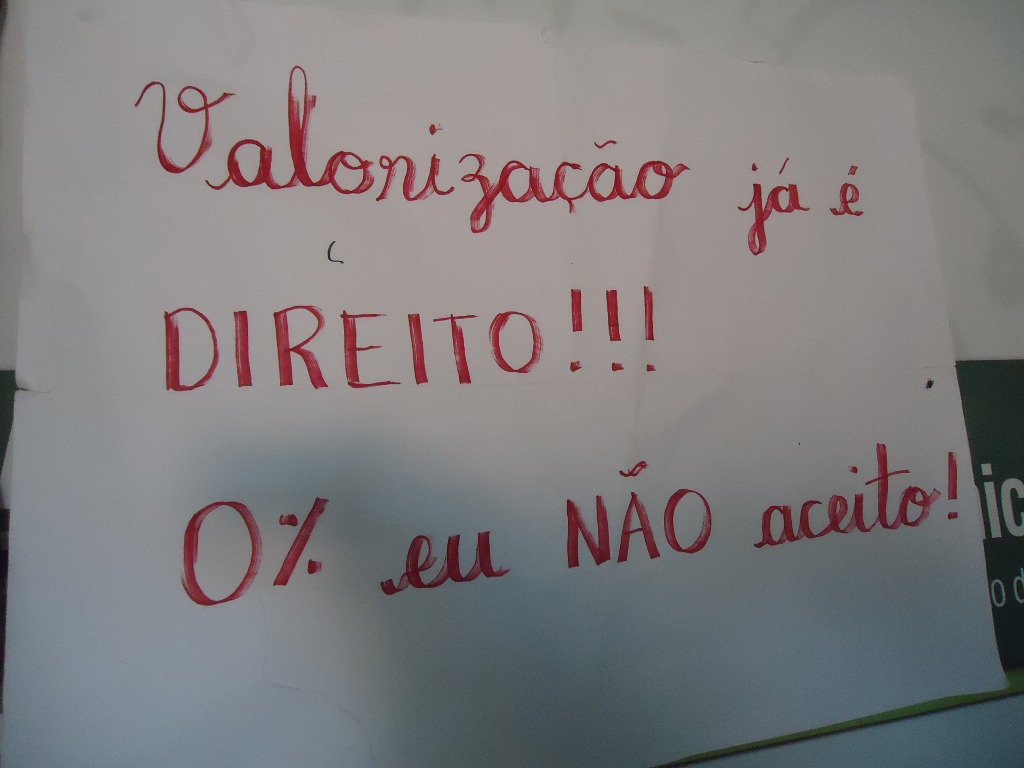 Valorização já é
DIREITO!!!
0% eu NÃO aceito!
ic
o d